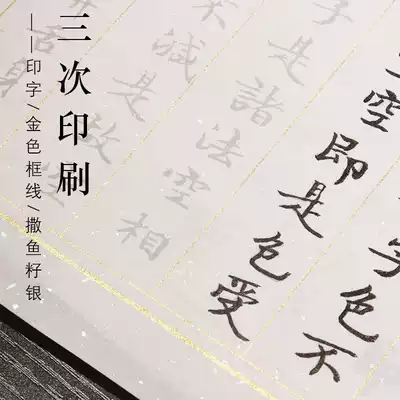 三次印刷
——印字/金色框线/撒鱼籽银
色不
空即是色受
子是諸法空相
不減是故空
舌身